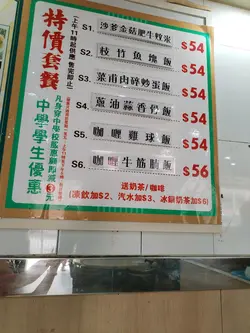 特價套餐
(上午11時起供應 售完即止)
S1. 沙爹金菇肥牛炆米 $54
S2. 枝竹魚塊飯 $54
S3. 菜甫肉碎炒蛋飯 $54
S4. 蔥油蒜香骨飯 $54
S5. 咖喱雞球飯 $54
S6. 咖喱牛筋腩飯 $56
送奶茶/咖啡
(凍飲加$2、汽水加$3、冰鎮奶茶加$6)
中學學生優惠
凡身穿中學校服惠顧即減3元